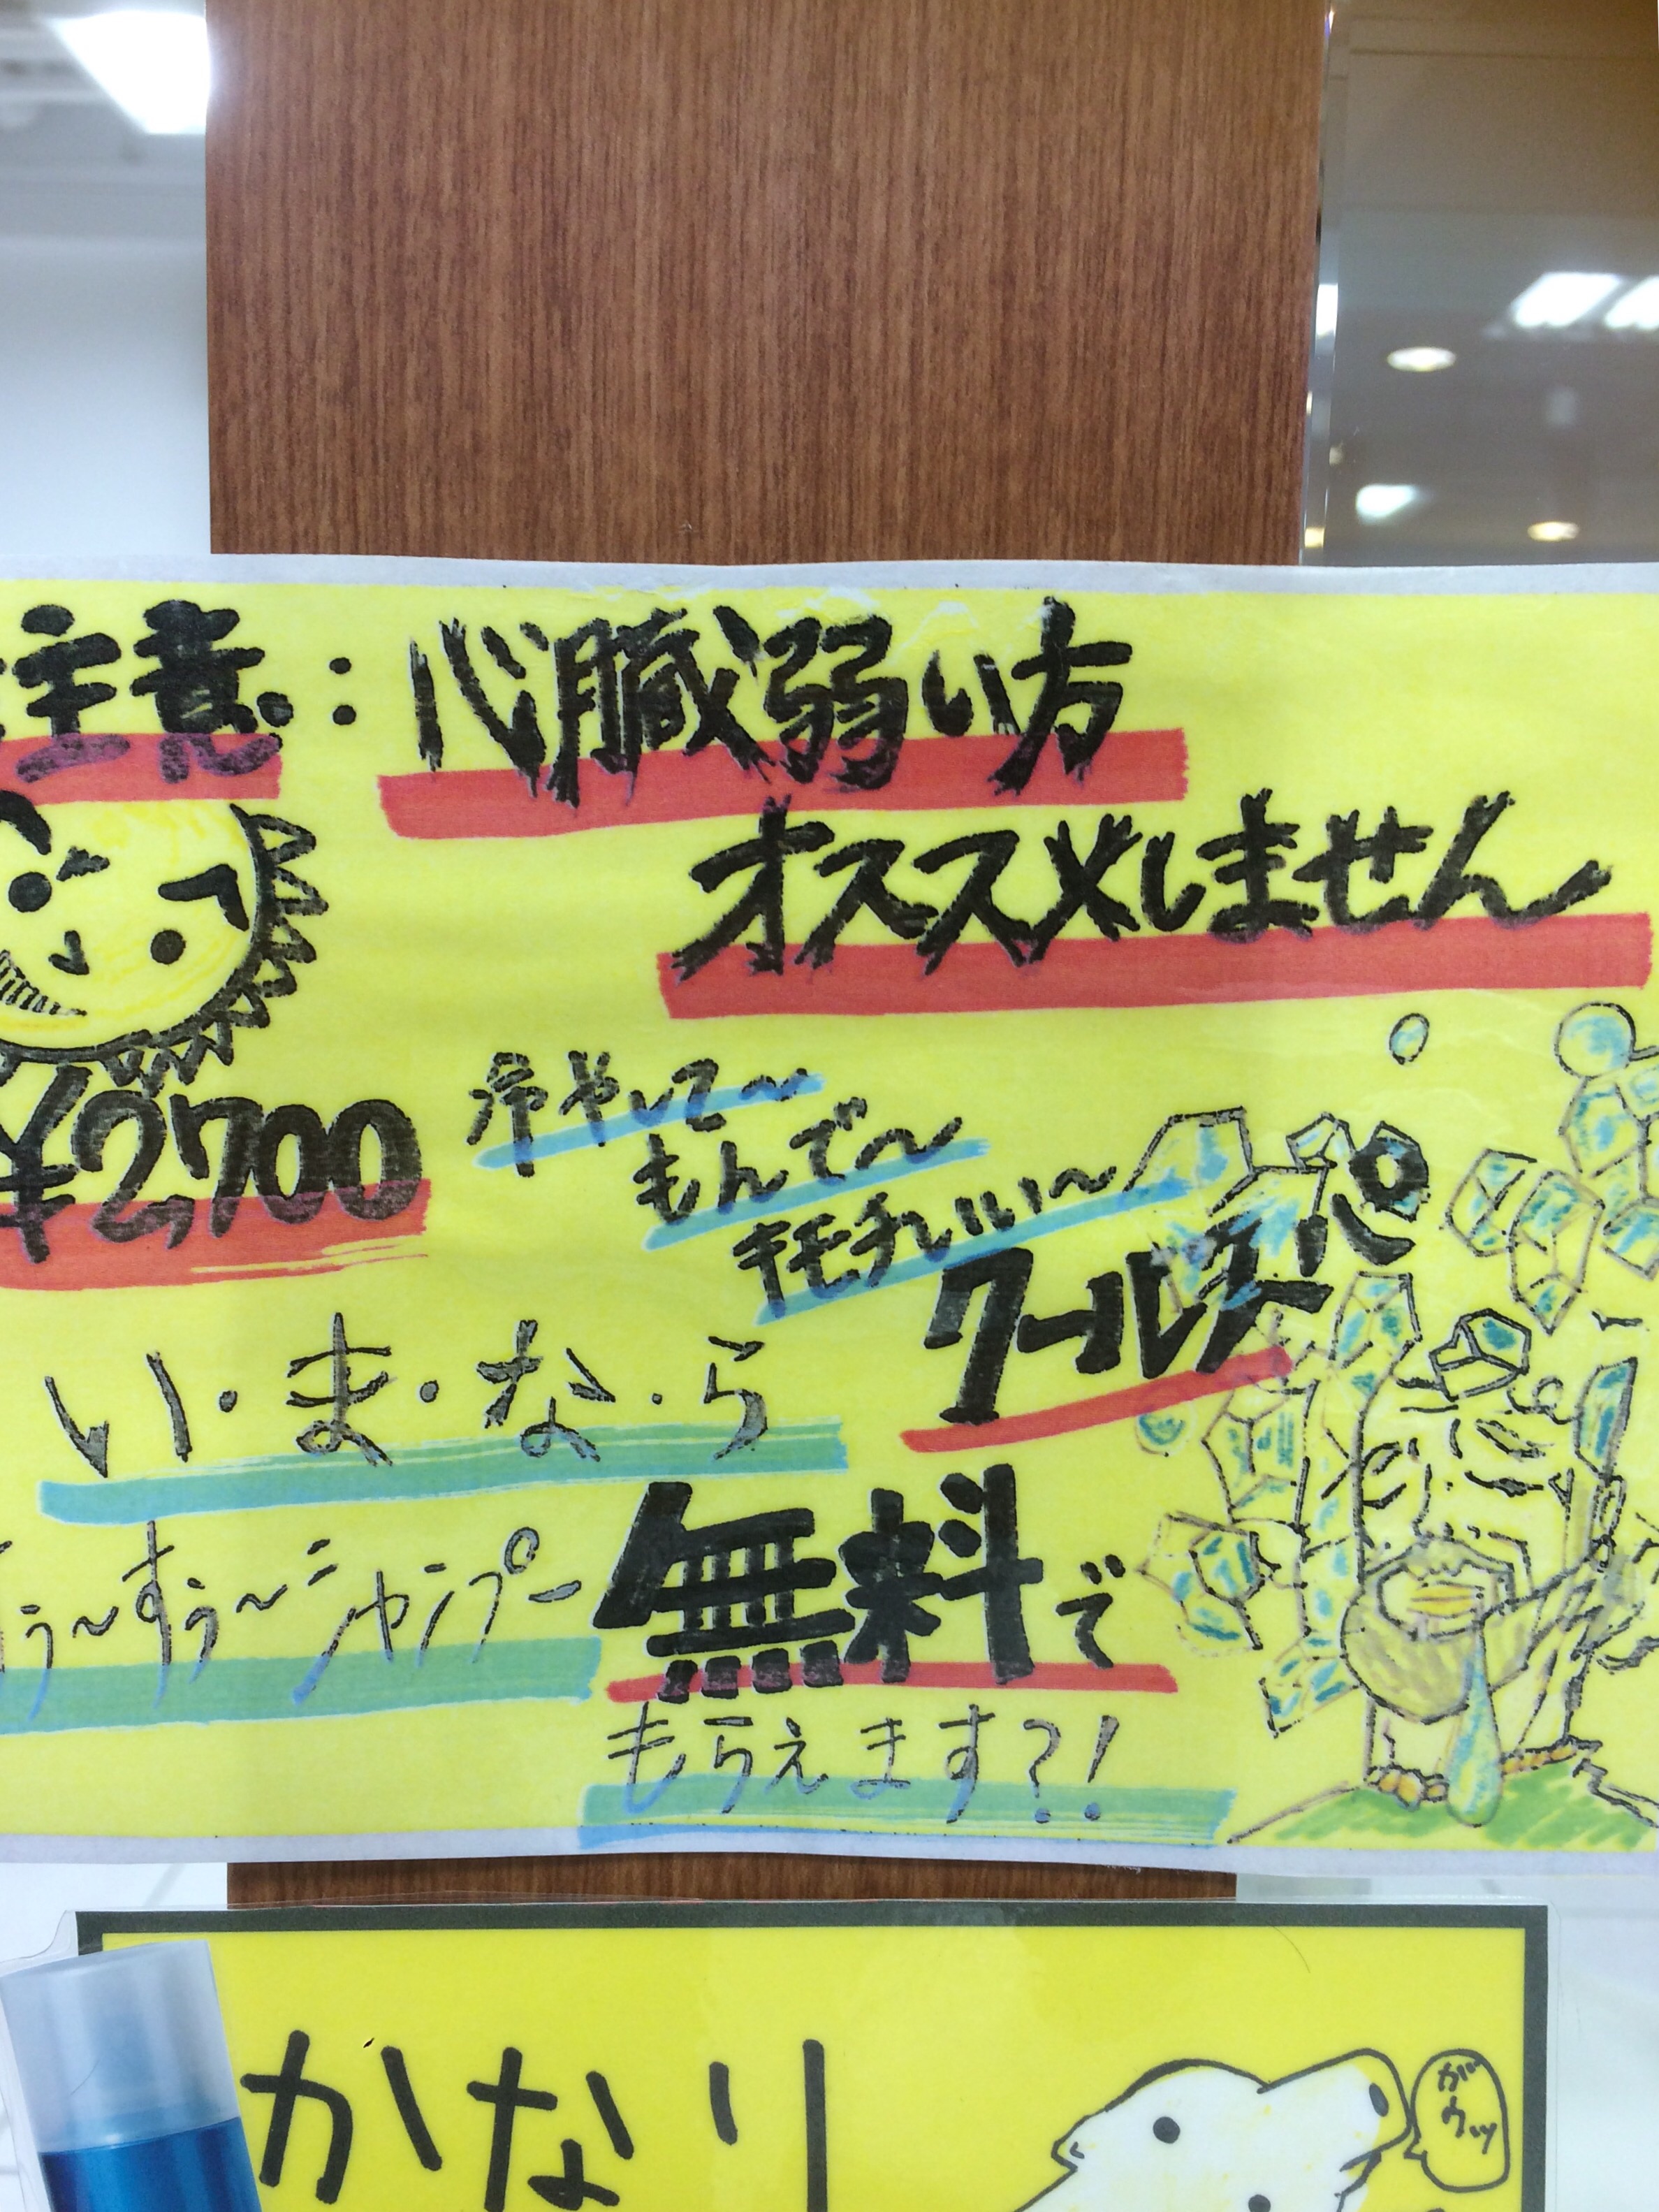 注意:心臓弱い方
オススメしません
¥2,700
冷やして〜
もんで〜
キモチいい〜
クールスパ
い・ま・な・ら
すぅ〜すぅ〜シャンプー
無料で
もらえます?!
かなり
がウッ